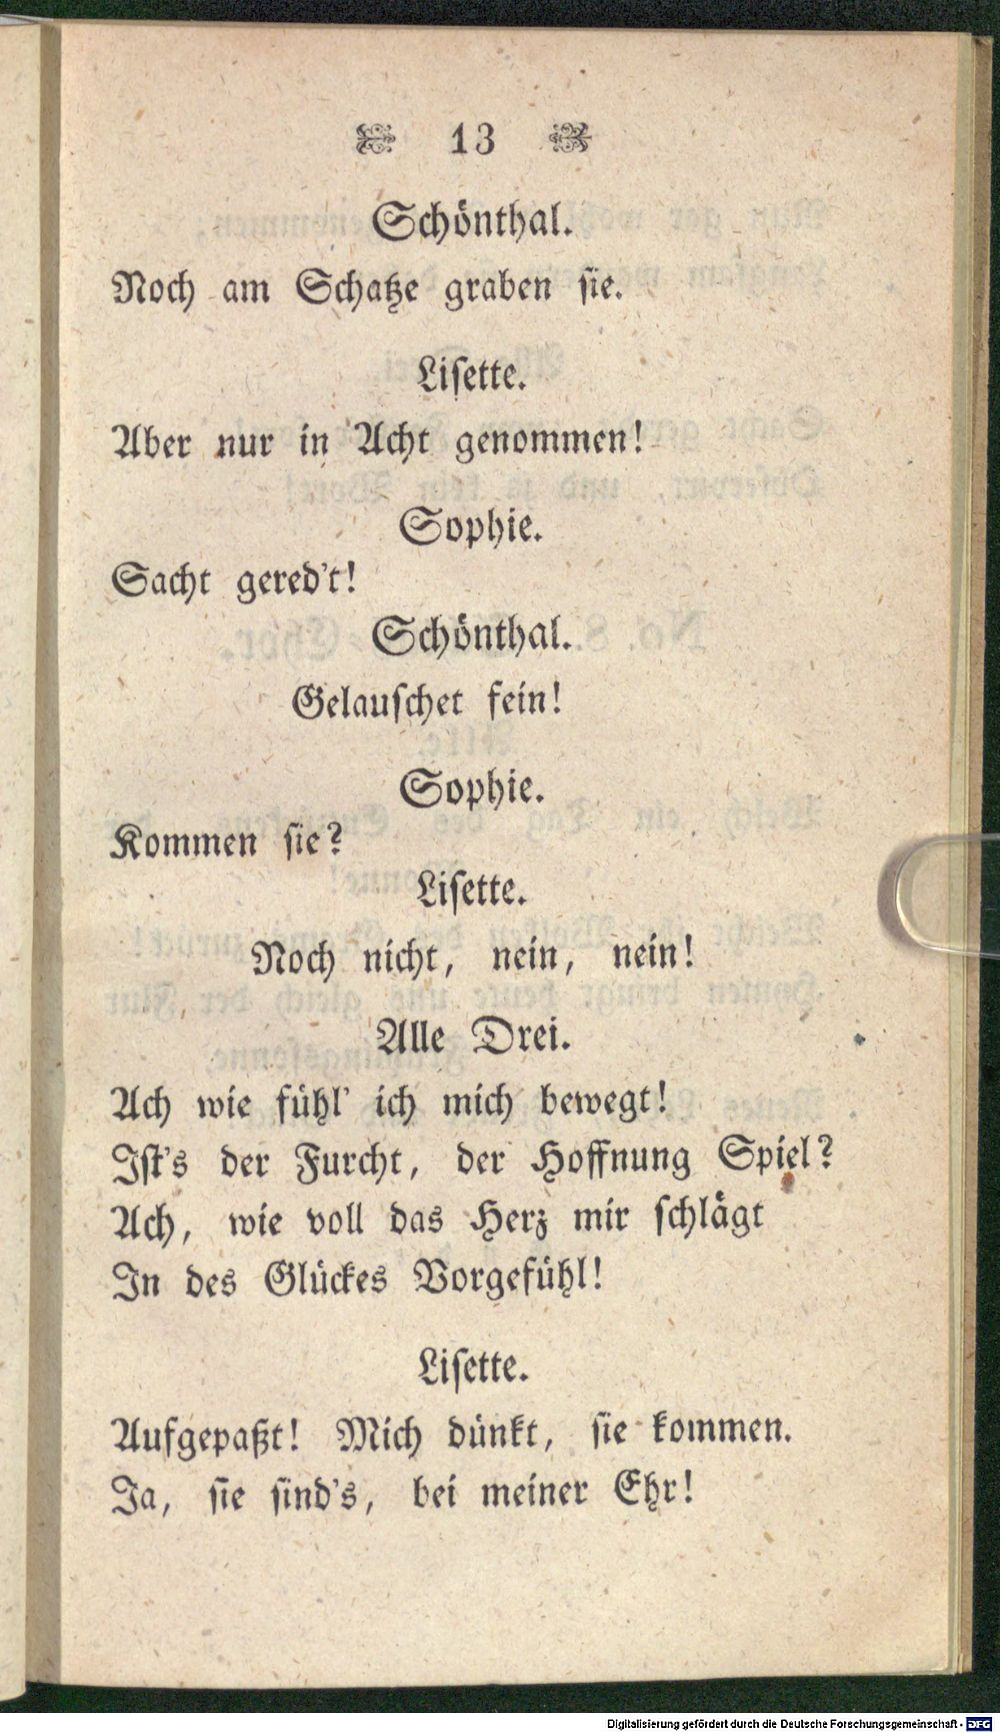 13
Schönthal.
Noch am Schatze graben sie.
Lisette.
Aber nur in Acht genommen!
Sophie.
Sacht gered't!
Schönthal.
Gelauschet fein!
Sophie.
Kommen sie?
Lisette.
Noch nicht, nein, nein!
Alle Drei.
Ach wie fühl' ich mich bewegt!
Ist's der Furcht, der Hoffnung Spiel?
Ach, wie voll das Herz mir schlägt
In des Glückes Vorgefühl!
Lisette.
Aufgepaßt! Mich dünkt, sie kommen.
Ja, sie sind's, bei meiner Ehr!
Digitalisierung gefördert durch die Deutsche Forschungsgemeinschaft - DFG